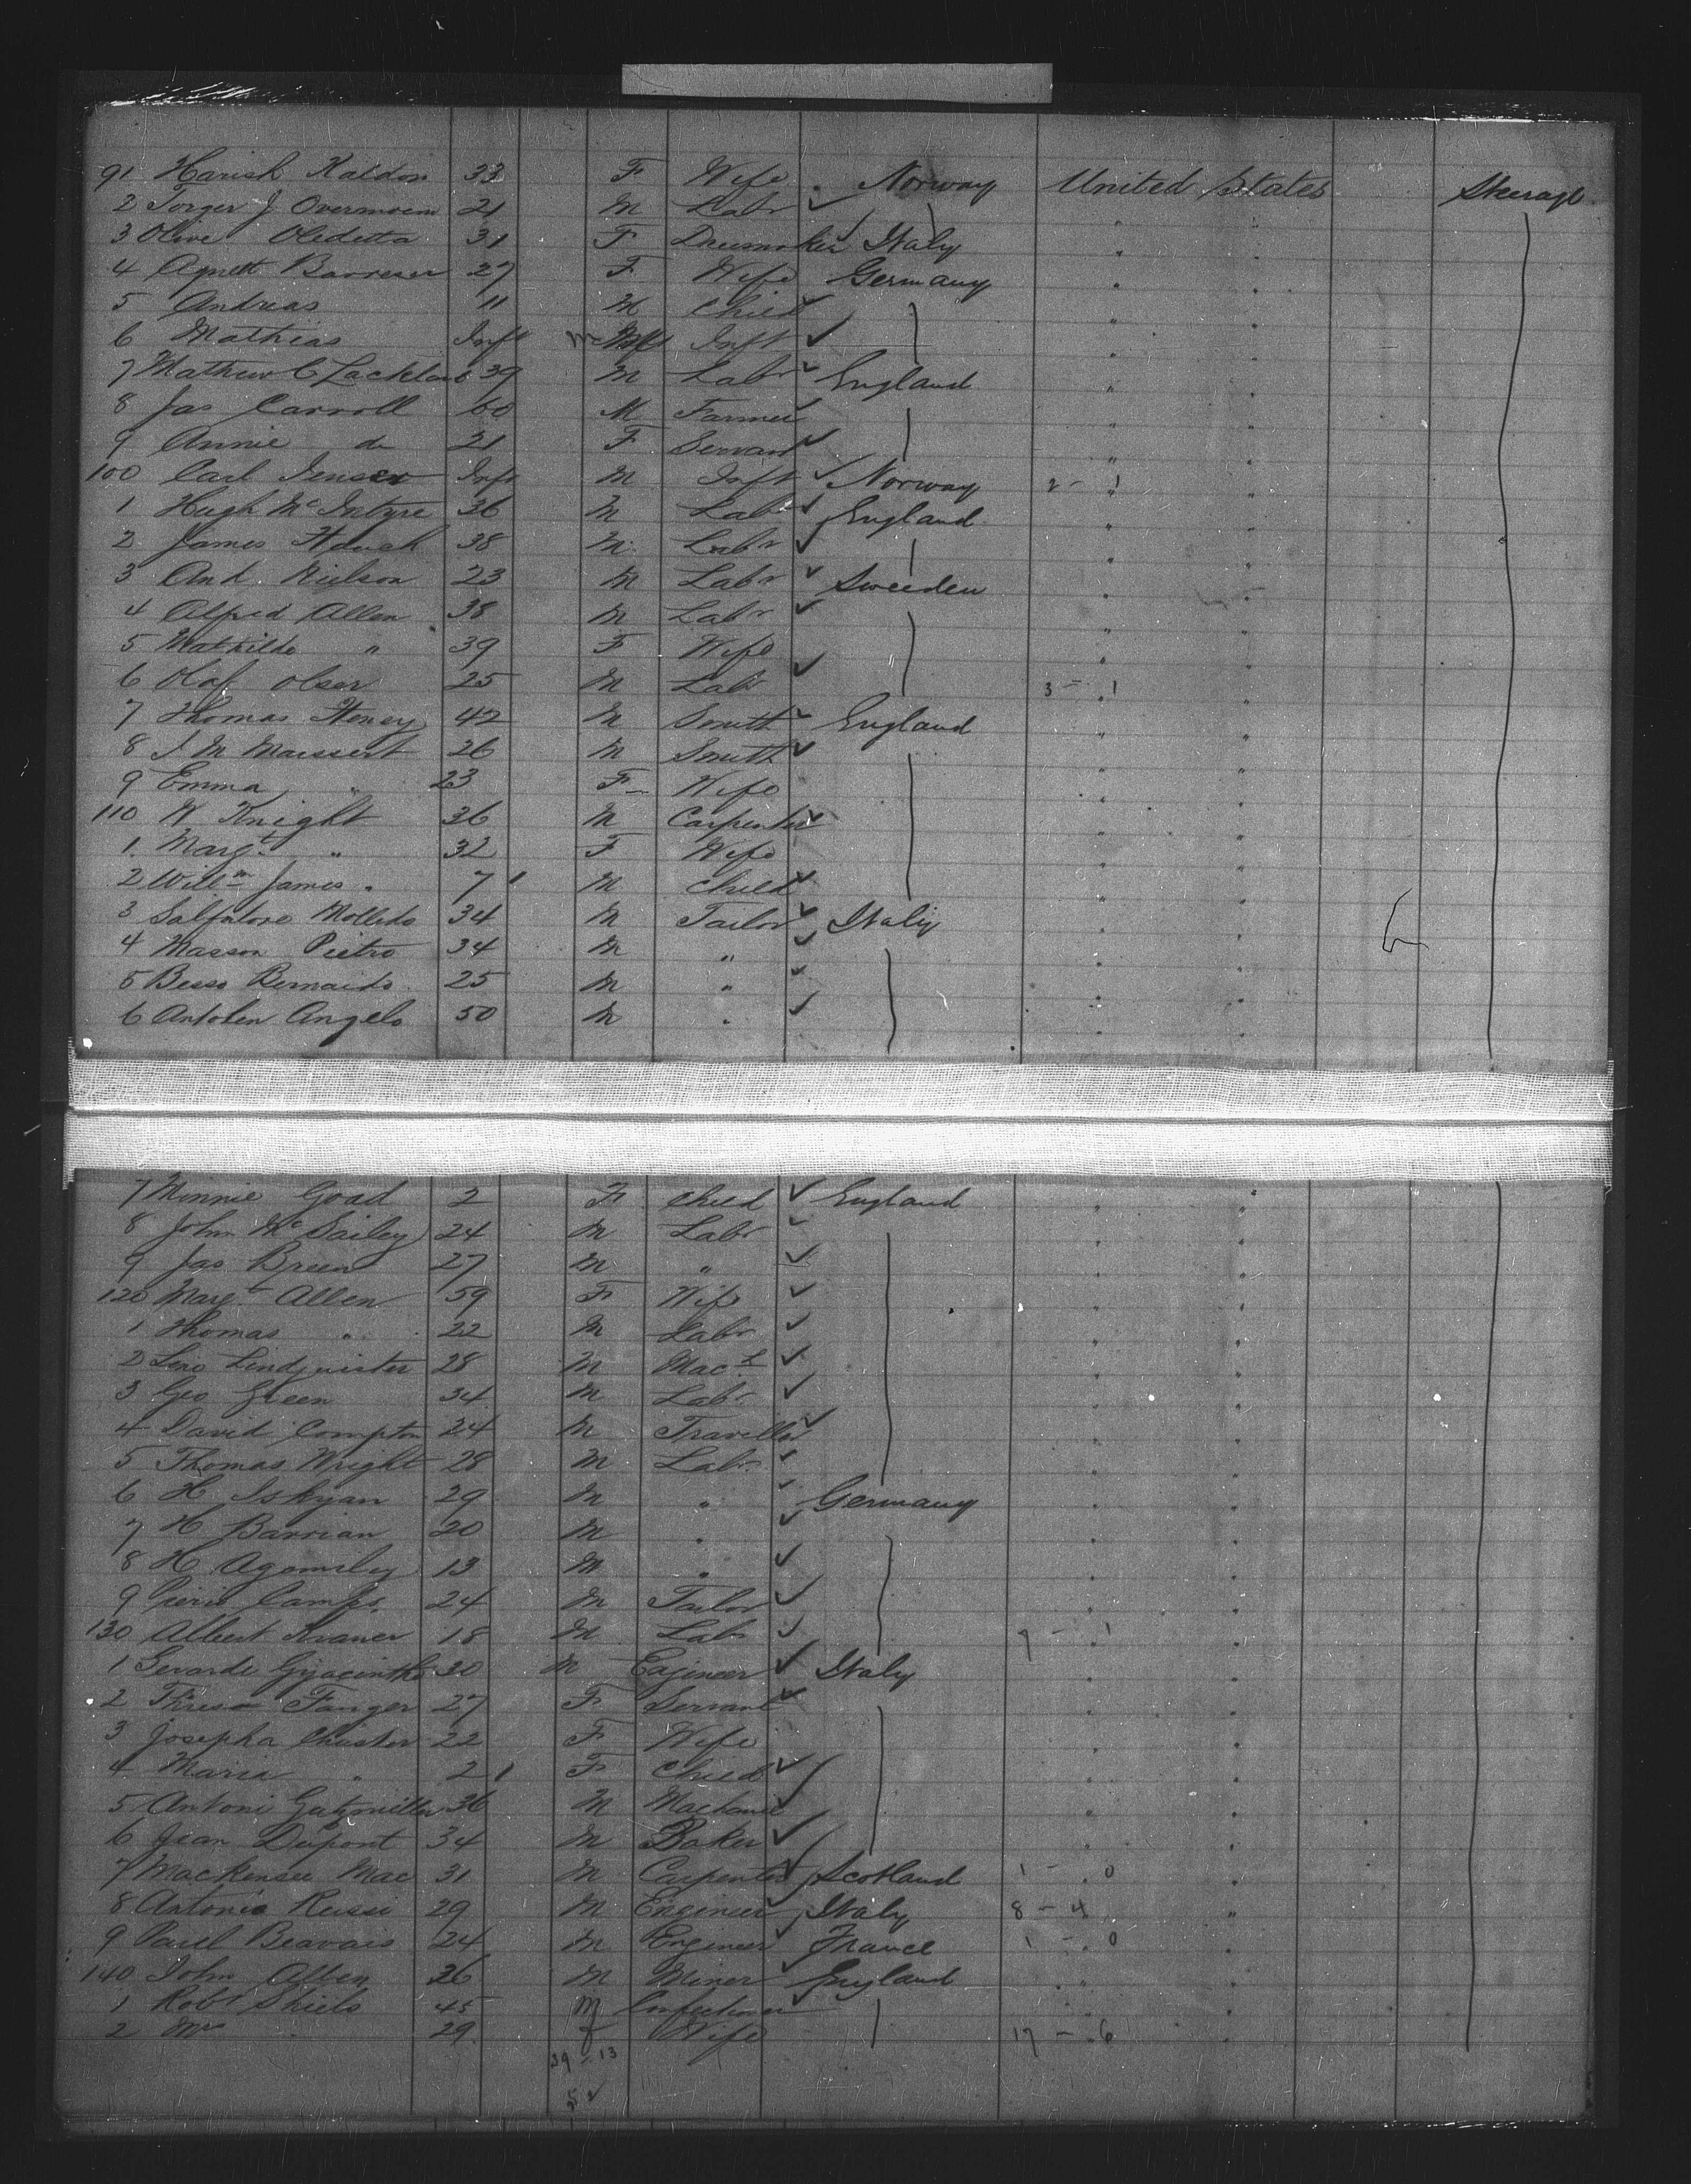 91 Harish Kaldon 33 F Wife Norway United States Steerage
2 Torger J Overmoem 21 M Labr
3 Olive Oledetta 31 F Dressmaker Italy
4 Agnett Barreser 27 F Wife Germany
5 Andreas 11 M Child
6 Mathias Inft M Inft
7 Mathew C Lackland 39 M Labr England
8 Jas Carroll 60 M Farmer
9 Annie do 21 F Servant
100 Carl Jensen Inft M Inft Norway 2 - 1
1 Hugh McIntyre 36 M Labr England
2 James 38 M Labr
3 And. Nielson 23 M Labr Sweeden
4 Alfred Allen 38 M Labr
5 Mathilde " 39 F Wife
6 Olaf Olsen 25 M Labr 3 - 1
7 Thomas Heney 42 M Smith England
8 J M Maissert 26 M Smith
9 Emma " 23 F Wife
110 W Knight 36 M Carpenter
1 Margt " 32 F Wife
2 Willm James " 7 M Child
3 Salfatore Molledo 34 M Tailor Italy
4 Masson Pietro 34 M "
5 Besso Bernardo 25 M "
6 Antolen Angelo 50 M "
7 Minnie Goad 2 F Child England
8 John McSailey 24 M Labr
9 Jas Breen 27 M "
120 Margt Allen 59 F Wife
1 Thomas " 22 M Labr
2 Lindquister 28 M Mach
3 Geo Green 34 M Labr
4 David Compton 24 M Traveller
5 Thomas Wright 28 M Labr
6 H Iskyan 29 M " Germany
7 H Barrian 20 M "
8 H Agomsby 13 M "
9 Pierre Camps 24 M Tailor
130 Albert Kraner 18 M Labr 9 - 1
1 Gerarde Gyacintho 30 M Engineer Italy
2 Theresa Fanger 27 F Servant
3 Josepha Chuster 22 F Wife
4 Maria " 2 F Child
5 Antoni Gutzmiller 36 M Mechanic
6 Jean Dupont 34 M Baker
7 Mackensee Mac 31 M Carpenter Scotland 1 - 0
8 Antonio Russi 29 M Engineer Italy 8 - 4
9 Paul Beavais 24 M Engineer France 1 - 0
140 John Allen 36 M Miner England
1 Robt Shiels 45 M Confectioner
2 Mrs " 29 F Wife 17 - 6
39 - 13
52